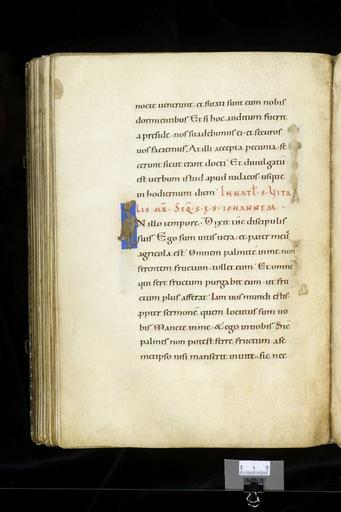 nocte uenerunt· et furati sunt eum nobis
dormientibus· Et si hoc auditum fuerit
a preside· nos suadebimus ei· et securos
uos faciemus· At illi accepta pecunia· fe
cerunt sicut erant docti· Et diuulgatū
est uerbum istud apud iudeos· usque
in hodiernum diem· IN NAT S· VITA
LIS MR· SEQ· S· EV· S· IOHANNEM·
IN illo tempore· Dixit ihc discipulis
suis· Ego sum uitis uera· et pater meus
agricola est· Omnem palmitē in me non
ferentem fructum· tollet eum· Et omnē
qui fert fructum purgabit eum· ut fru
ctum plus afferat· Iam uos mundi estis·
propter sermonē quem locutus sum uo
bis· Manete in me· & ego in uobis· Sic̄
palmes non potest ferre fructum a se
metipso nisi manserit in uite· sic nec